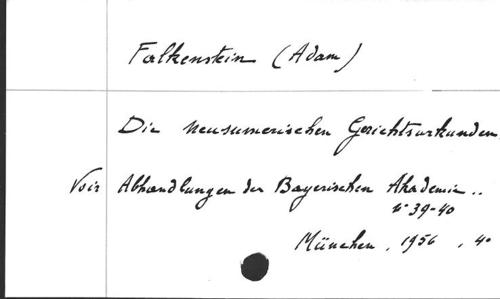 Falkenstein (Adam)
Die neusumerischen Gerichtsurkunden
Voir Abhandlungen der Bayerischen Akademie ..
n° 39-40
München, 1956, 4°